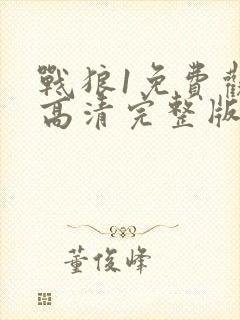 戰狼1免費觀
高清完整版
董俊峰